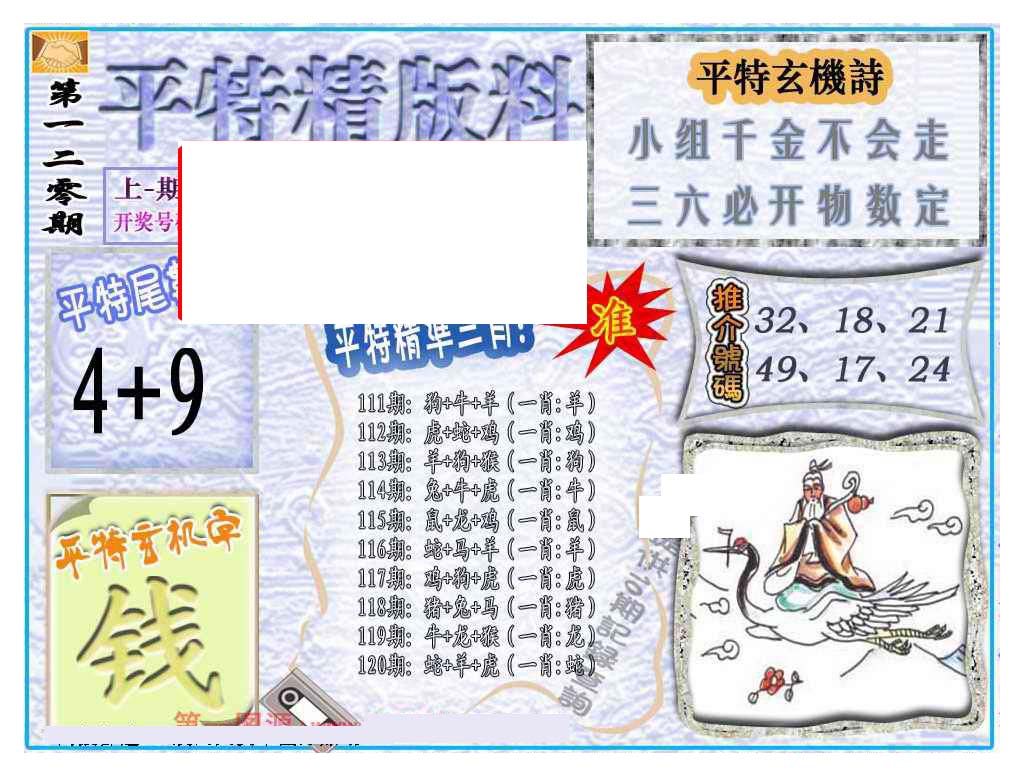 第一二零期
平特精版料
上-期
开奖号
平特玄機詩
小组千金不会走
三六必开物数定
平特尾
4+9
平特精準三肖!
准
推介號碼
32、18、21
49、17、24
111期: 狗+牛+羊 (一肖:羊)
112期: 虎+蛇+鸡 (一肖:鸡)
113期: 羊+狗+猴 (一肖:狗)
114期: 兔+牛+虎 (一肖:牛)
115期: 鼠+龙+鸡 (一肖:鼠)
116期: 蛇+马+羊 (一肖:羊)
117期: 鸡+狗+虎 (一肖:虎)
118期: 猪+兔+马 (一肖:猪)
119期: 牛+龙+猴 (一肖:龙)
120期: 蛇+羊+虎 (一肖:蛇)
平特玄机字
钱
供3期記錄查詢